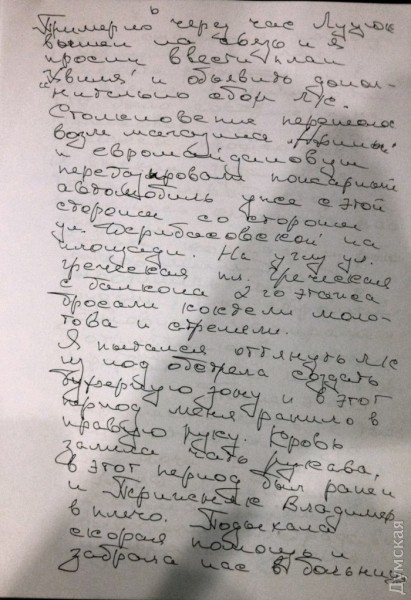 Примерно через час Луцюк
вышел на связь и я
просил ввести план
"Хвиля" и объявить допол-
нительно сбор л/с.
Столкновение перенеслось
возле магазина
и евромайдановцы
перебазировали пожарный
автомобиль уже с этой
стороны со стороны
ул. Дерибасовской на
площади. На углу ул.
Греческая пл. Греческая
с балкона 2го этажа
бросали коктели моло-
това и стреляли.
Я пытался оттянуть л/с
из под обстрела создать
буферную зону и в этот
период меня ранило в
правую руку. Кровь
залила часть рукава,
в этот период был ранен
и Владимир
в плечо. Подъехала
скорая помощь и
забрала нас в больницу
Думская